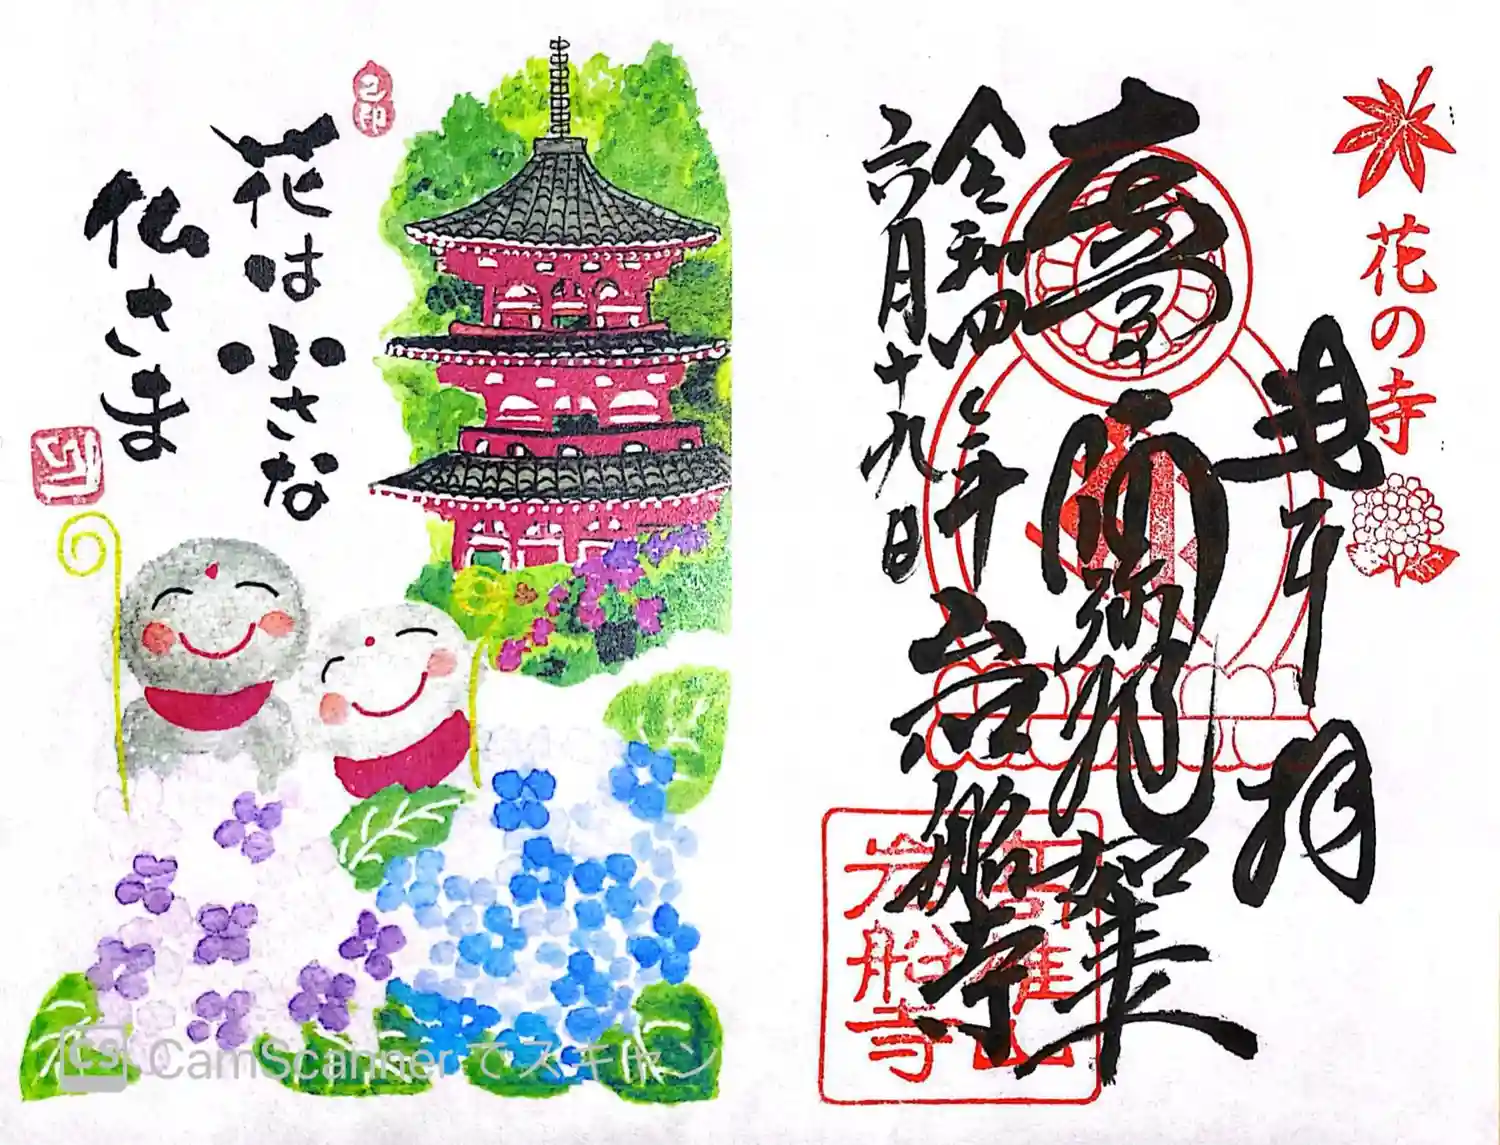 花は小さな
仏さま
花の寺
拝
阿弥陀如来
令和四年
六月十九日
岩船寺
高雄山
岩船寺
CamScanner でスキャン